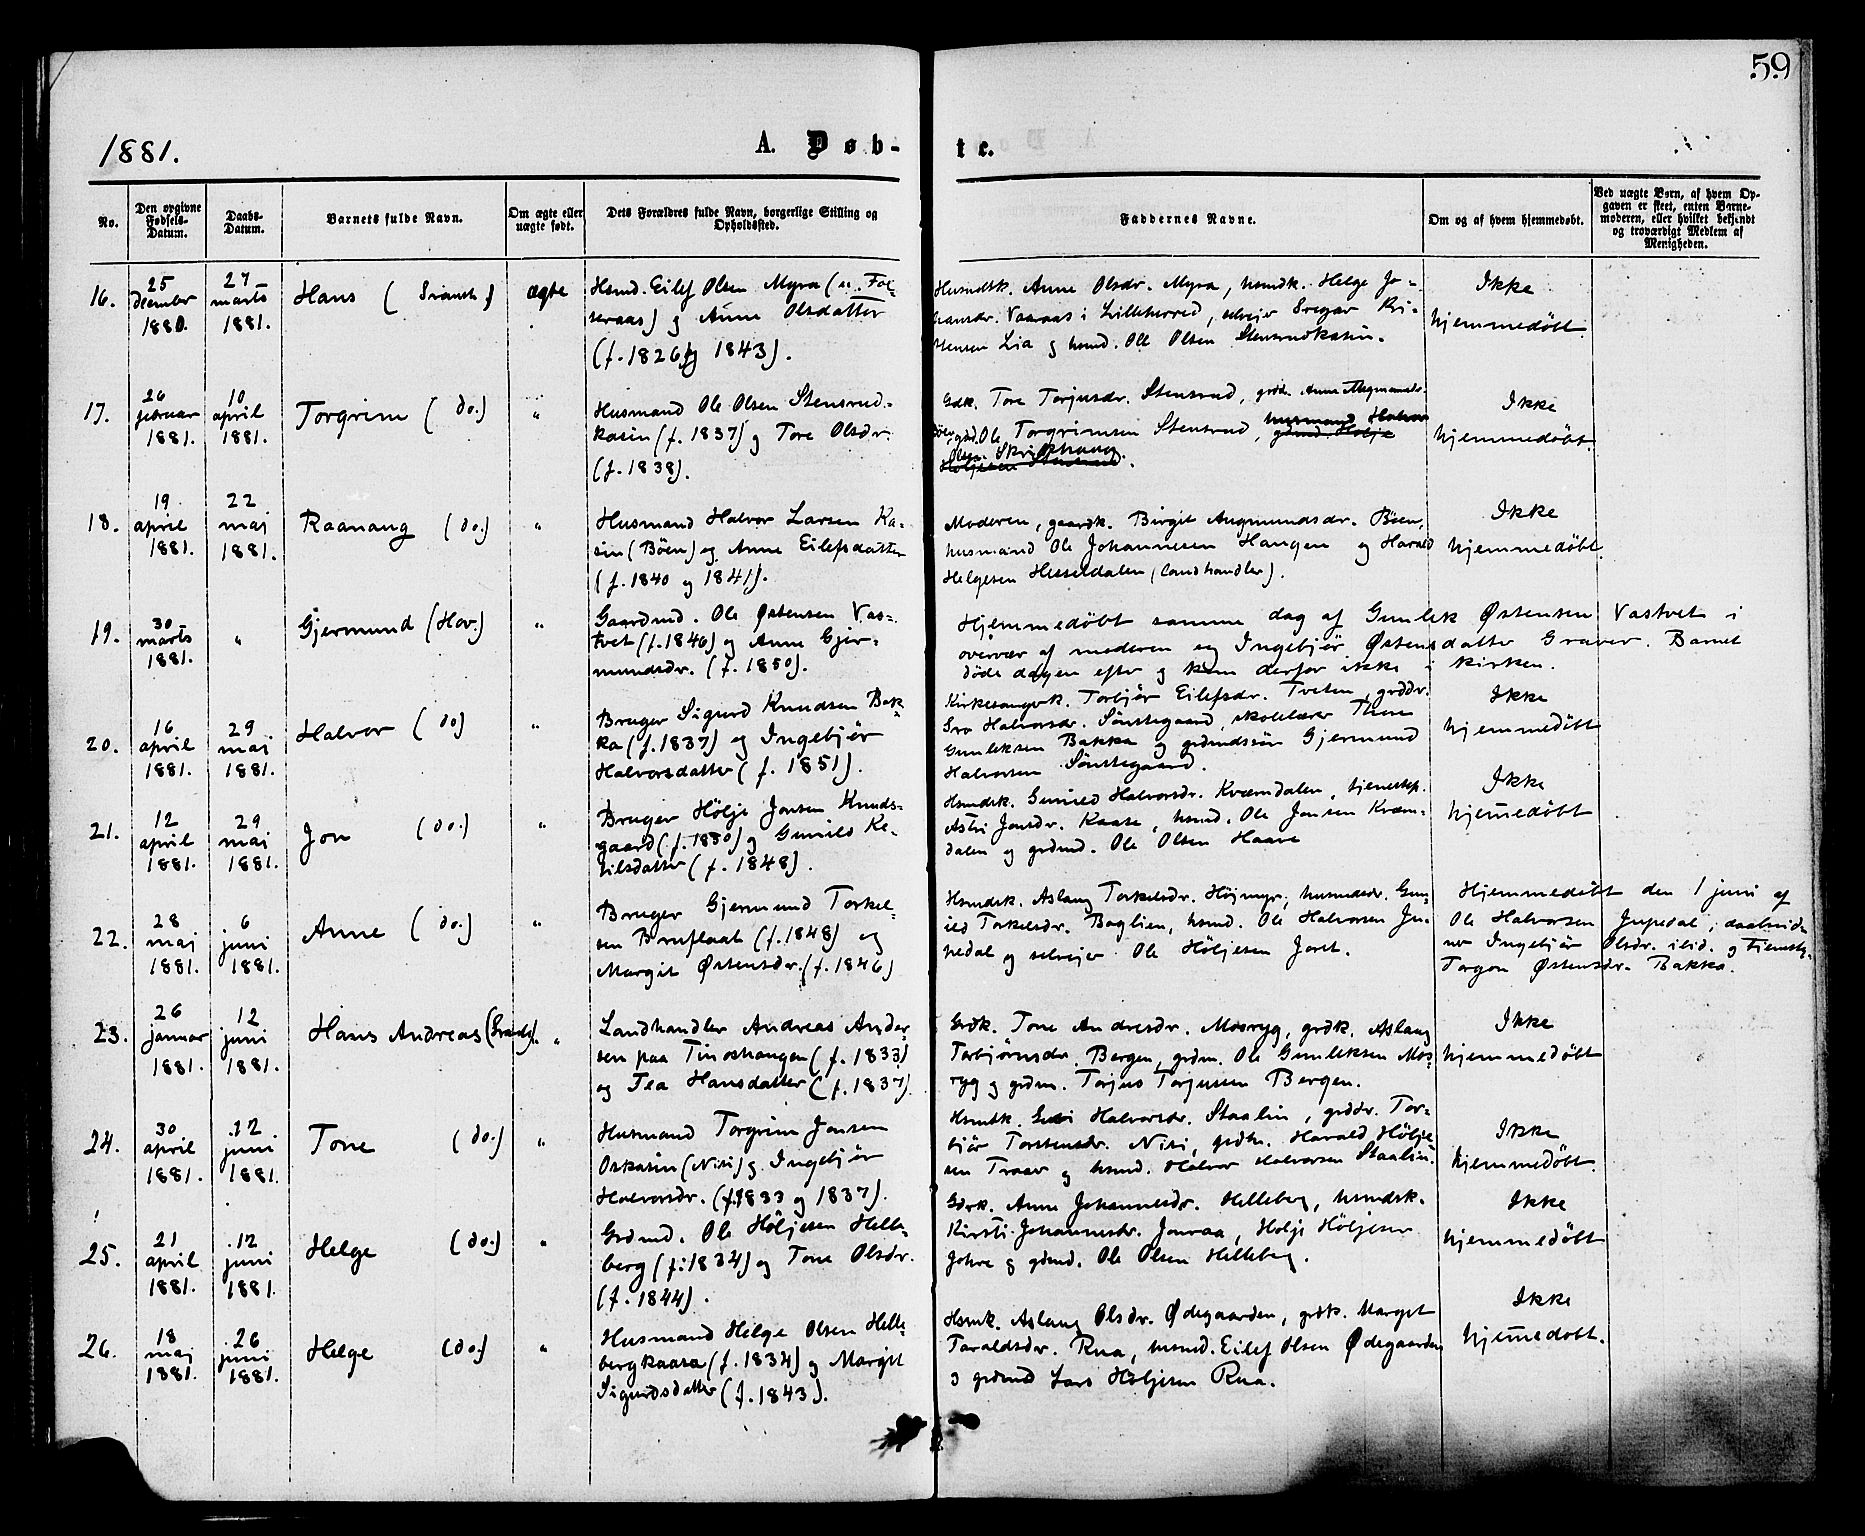 59
1881.
A. Døb-
te.
No.
Den opgivne Fødsels-Datum.
Daabs-Datum.
Barnets fulde Navn.
Om ægte eller uægte født.
Dets Forældres fulde Navn, borgerlige Stilling og Opholdssted.
Faddernes Navne.
Om og af hvem hjemmedøbt.
Ved uægte Børn, af hvem Op-
gaven er skeet, enten Barne-
moderen, eller hvilket bekjendt
og troværdigt Medlem af
Menigheden.
16.
25 december 1880.
27 marts 1881.
Hans (Gransh.)
ægte
Hsmd. Eilef Olsen Myra (
) og Anne Olsdatter
(f. 1826 og 1843).
Husmdsk. Anne Olsdr. Myra, hsmdk. Helge Jo-
hansdr. i Lilleherred, selvejer Kri-
stensen Lia og hsmd. Ole Olsen Stensrudkasin.
Ikke
hjemmedøbt
17.
26 februar 1881.
10 april 1881.
Torgrim (do.)
"
Husmand Ole Olsen Stensrud-
kasin (f. 1837) og Tore Olsdr.
(f. 1838).
Gdk. Tore Torjusdr. Stensrud, grdk. Anne
Bøen, gsd. Ole Torgrimsen Stensrud, husmand Halvor
Olsen Skrikhaug.
Ikke
hjemmedøbt
18.
19 april 1881.
22 maj 1881.
Raanaug (do.)
"
Husmand Halvor Larsen Ka-
sin (Böen) og Anne Eilefsdatter
(f. 1840 og 1841).
Moderen, gaardk. Birgit Augmundsdr. Böen,
husmand Ole Johannesen Haugen og Harald
Helgesen Hesseldalen (landhandler).
Ikke
hjemmedøbt
19.
30 marts 1881.
"
Gjermund (Hov.)
"
Gaardmd. Ole Østensen Vas-
tvet (f. 1846) og Anne Gjer-
mundsdr. (f. 1850).
Hjemmedøbt samme dag af Gunlek Østensen Vastvet i
overvær af moderen og Ingebjör Østensdatter Graver. Barnet
døde dagen efter og kom derfor ikke i kirken.
20.
16 april 1881.
29 maj 1881.
Halvor (do)
"
Bruger Sigurd Knudsen Bak-
ka (f. 1837) og Ingebjör
Halvorsdatter (f. 1851).
Kirkesangerk. Torbjör Eilefsdr. Tveten, grddr.
Gro Halvorsdr. Sønstegaard, skolelærer Thore
Gunleksen Bakka og grdmdssön Gjermund
Halvorsen Sønstegaard.
Ikke
hjemmedöbt
21.
12 april 1881.
29 maj 1881.
Jon (do.)
"
Bruger Hölje Jonsen Knuds-
gaard (f. 1850) og Gunild Ke-
tilsdatter (f. 1848).
Hsmdsk. Gunild Halvorsdr. Kværndalen, tjenestep.
Astri Jonsdr. Kaase, hsmd. Ole Jonsen Kværn-
dalen og grdmd. Ole Olsen Haave
Ikke
hjemedöbt
22.
28 maj 1881.
6 juni 1881.
Anne (do.)
"
Bruger Gjermund Torkel-
sen Bruflaat (f. 1848) og
Margit Østensdr. (f. 1846)
Hsmdsk. Aslaug Torkelsdr. Höjmyr, husmdsdr. Gun-
ild Torkelsdr. Baglien, hsmd. Ole Halvorsen Ju-
pedal og selvejer Ole Höljesen Joret.
Hjemmedöbt den 1 juni af
Ole Halvorsen Jupedal; daabsvid-
ner Ingebjör Olsdr. ibid. og tjenestp.
Torgon Østensdr. Bakka.
23.
26 januar 1881.
12 juni 1881.
Hans Andreas (Gransh.)
"
Landhandler Andreas Ander-
sen paa Tinoshaugen (f. 1833)
og Tea Hansdatter (f. 1837).
Grdk. Tone Andresdr. Mosryg, grdk. Aslaug
Torbjörnsdr. Bergen, grdm. Ole Gunleksen Mos-
ryg og grdm. Torjus Torjussen Bergen.
Ikke
hjemmedöbt
24.
30 april 1881.
12 juni 1881.
Tone (do.)
"
Husmand Torgrim Jonsen
Oskasin (Nisi) og Ingebjör
Halvorsdr. (f. 1833 og 1837).
Hsmdk. Halvorsdr. Staalin, grddr. Tor-
björ Torstensdr. Nisi, grdm. Harald Hölje-
sen Traav og hsmd. Halvor Halvorsen Staalin.
Ikke
hjemmedöbt
25.
21 april 1881.
12 juni 1881.
Helge (do.)
"
Grdmd. Ole Höljesen Helle-
berg (f. 1834) og Tone Olsdr.
(f. 1844).
Gdrk. Anne Johannesdr. Helleberg, hsmdsk.
Kirsti Johannesdr. Jonraa, Holje Höljesen
Johre og gdmd. Ole Olsen Helleberg.
Ikke
hjemmedöbt
26.
18 maj 1881.
26 juni 1881.
Helge (do.)
"
Husmand Helge Olsen Helle-
bergkaasa (f. 1834) og Margit
Sigurdsdatter (f. 1843).
Hsmk. Aslaug Olsdr. Ødegaarden, grdk. Margit
Taraldsdr. Rua, hsmd. Eilef Olsen Ødegaarden
og grdmd Lars Höljesen Rua.
Ikke
hjemedöbt.